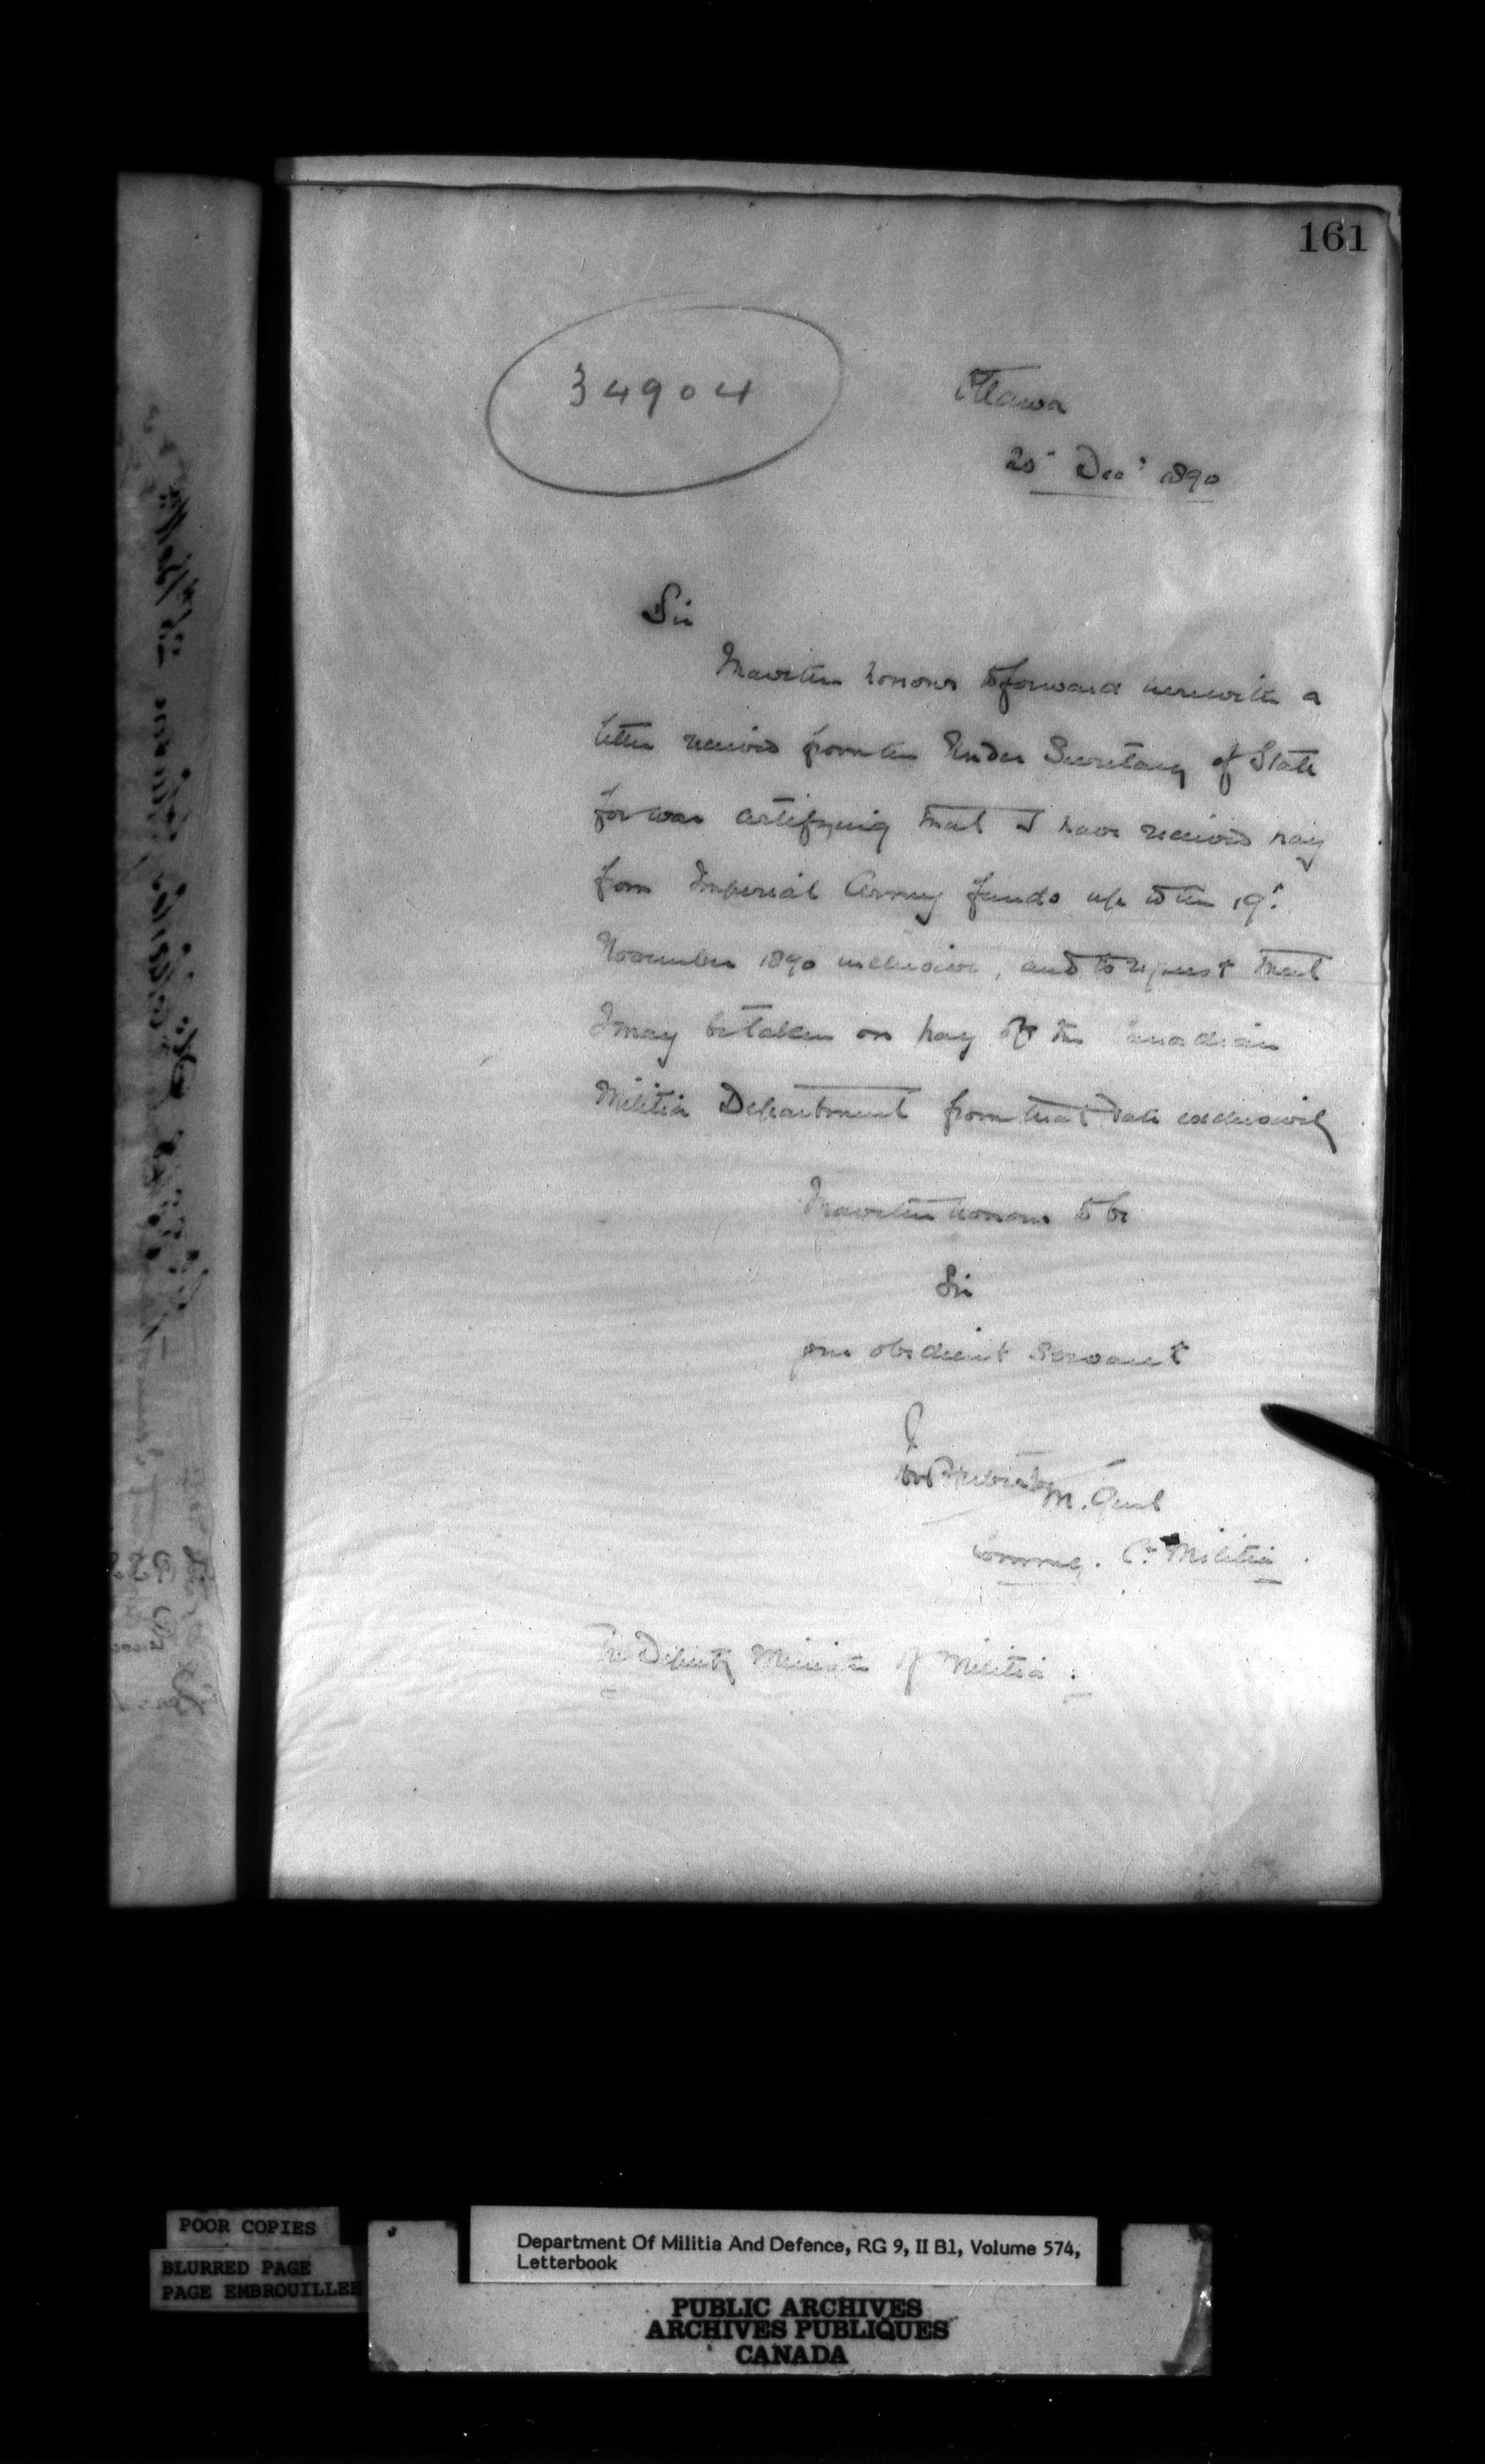 161
34904
Ottawa
20th Decr 1890
Sir
I have the honour to forward herewith a
letter received from the Under Secretary of State
for war certifying that I have received pay
from Imperial Army funds up to the 19th
November 1890 inclusive, and to request that
I may be taken on pay of the Canadian
Militia Department from that date exclusively
I have the honour to be
Sir
your obedient Servant
Ivor Herbert M. Genl
Commg. Cn Militia.
The Deputy Minister of Militia.
POOR COPIES
BLURRED PAGE
PAGE EMBROUILLEE
Department Of Militia And Defence, RG 9, II B1, Volume 574,
Letterbook
PUBLIC ARCHIVES
ARCHIVES PUBLIQUES
CANADA